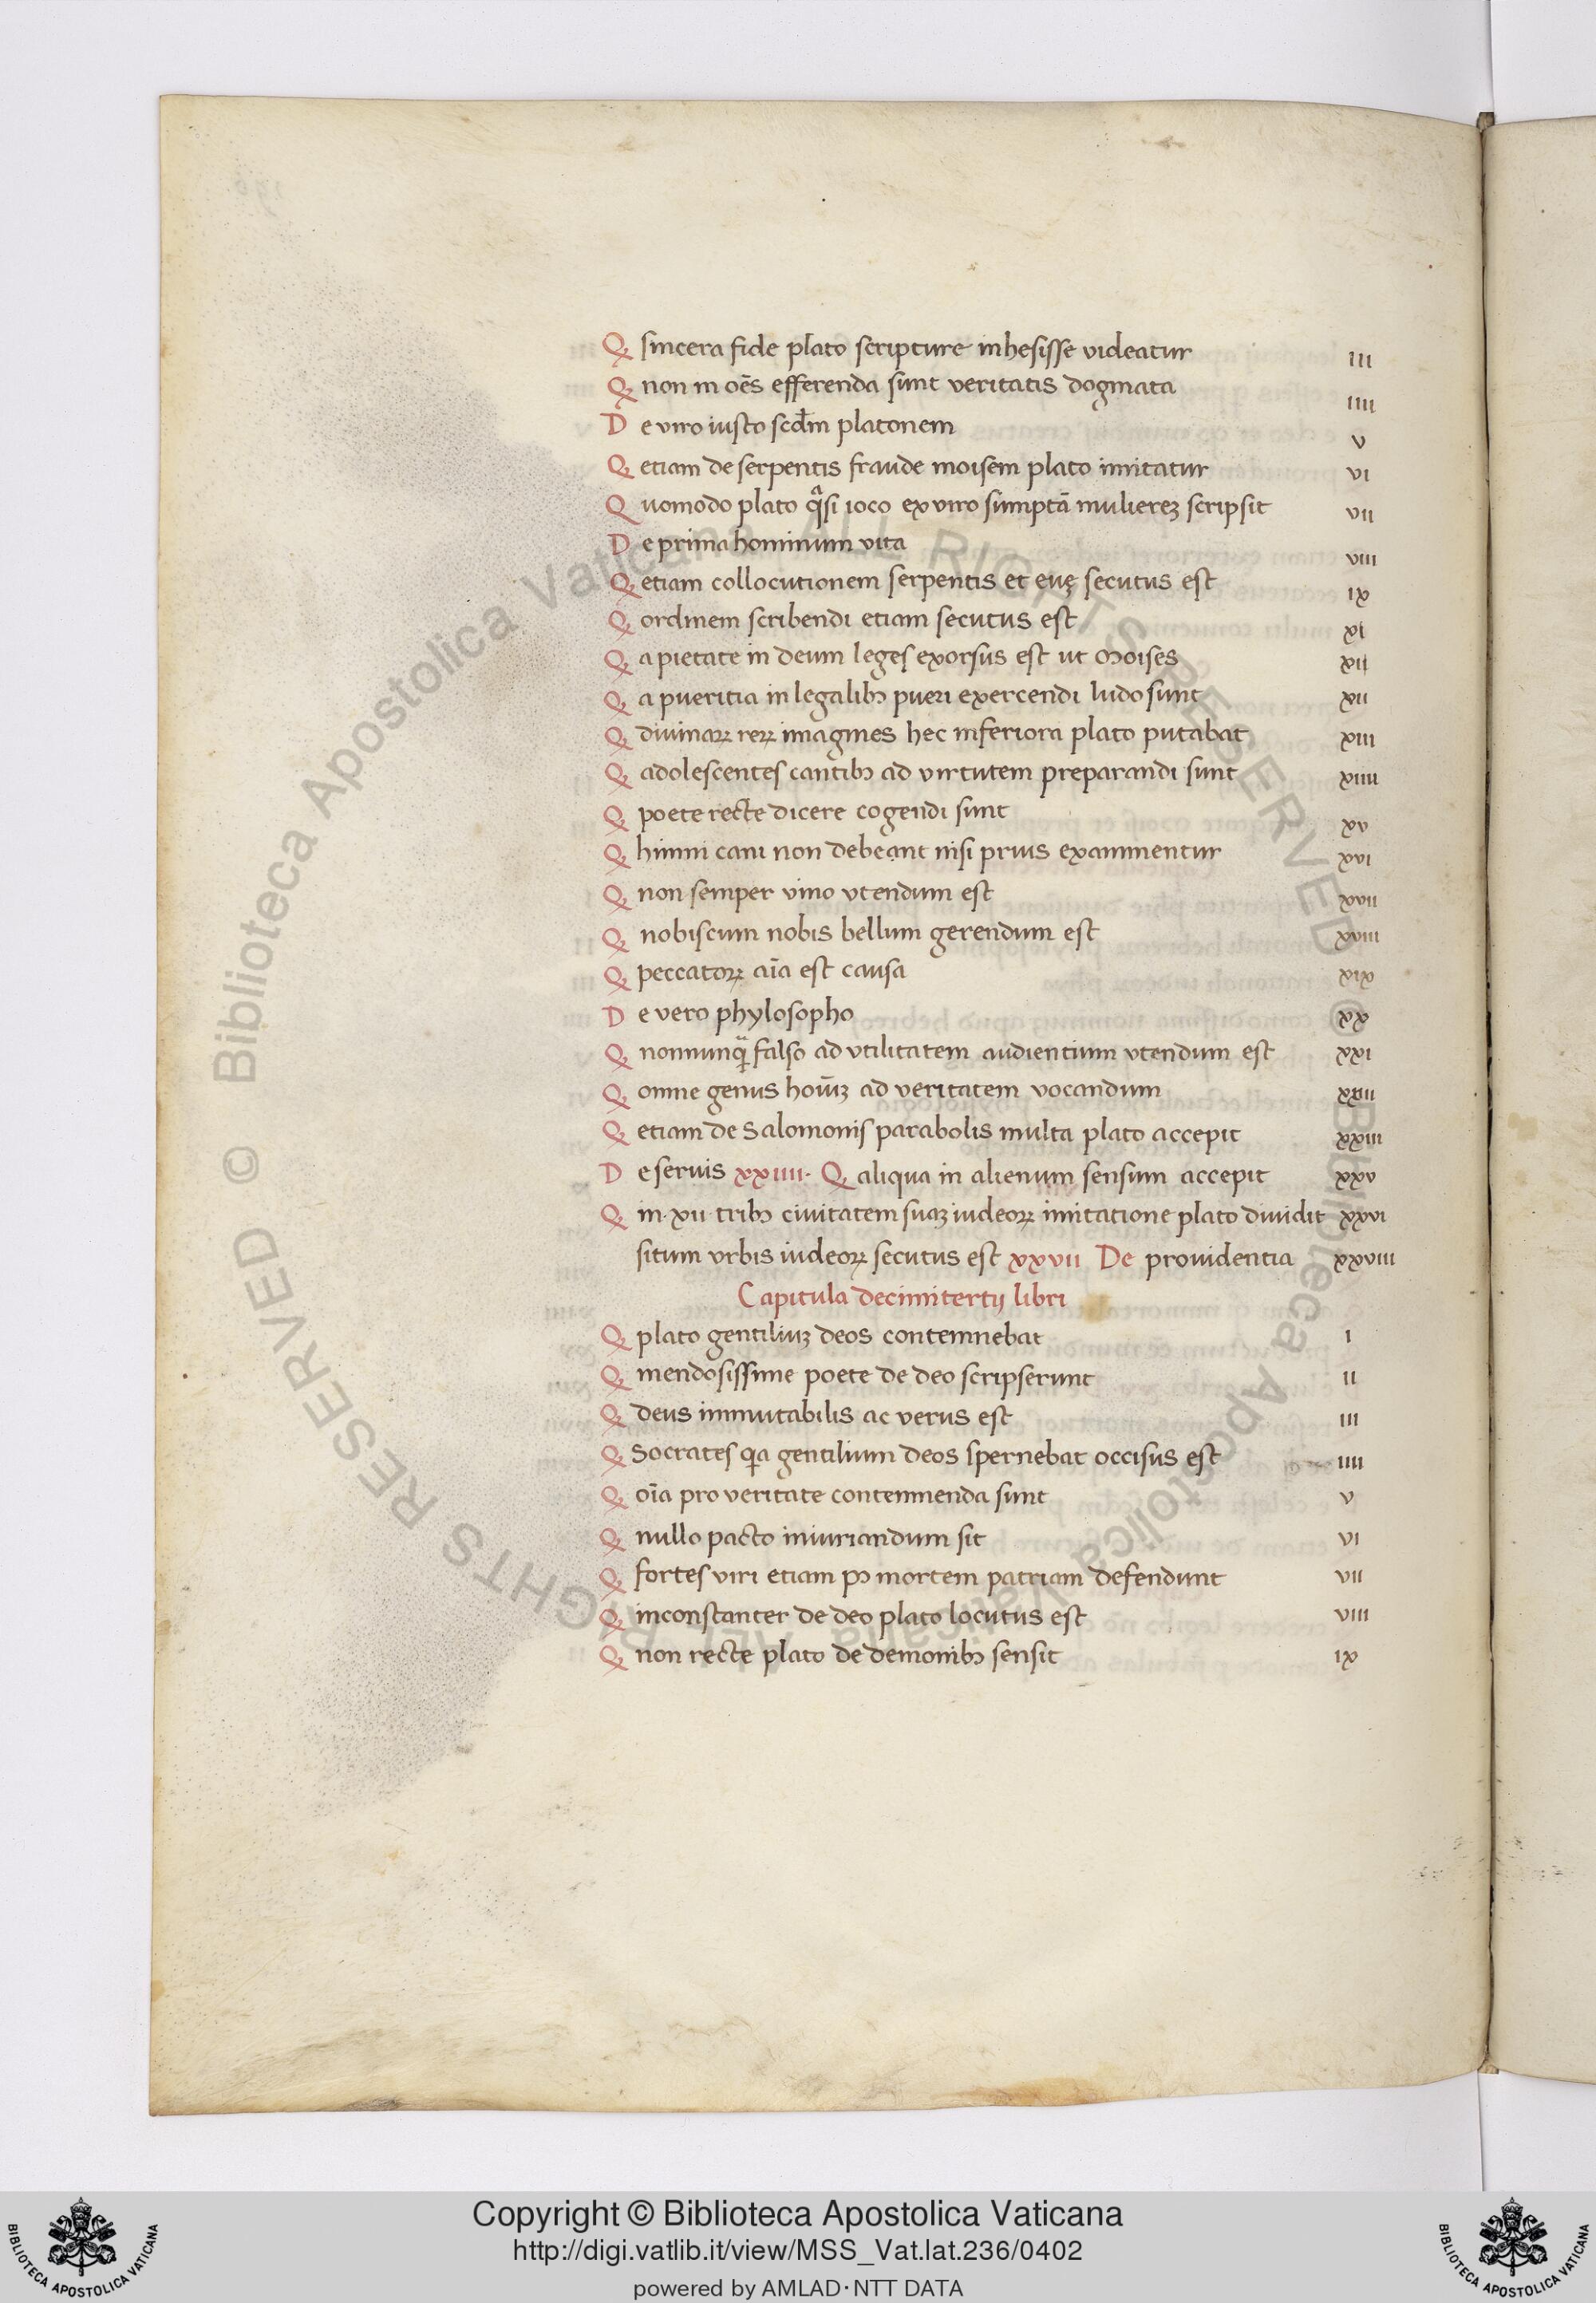 Ꝙ sincera fide plato scripture inhesisse videatur III
Ꝙ non in oēs efferenda sunt veritatis dogmata IIII
De viro iusto scd̄m platonem V
Ꝙ etiam de serpentis fraude moisem plato imitatur VI
Quomodo plato qᵃsi ioco ex viro sumptā mulierēꝫ scripsit VII
De prima hominum vita VIII
Ꝙ etiam collocutionem serpentis et euę secutus est IX
Ꝙ ordinem scribendi etiam secutus est XI
Ꝙ a pietate in deum leges exorsus est ut Moises XII
Ꝙ a pueritia in legalibꝫ pueri exercendi ludo sunt XII
Ꝙ diuinaꝝ reꝝ imagines hec inferiora plato putabat XIII
Ꝙ adolescentes cantibꝫ ad virtutem preparandi sunt XIIII
Ꝙ poete recte dicere cogendi sunt XV
Ꝙ himni cani non debeant nisi prius examinentur XVI
Ꝙ non semper vino vtendum est XVII
Ꝙ nobiscum nobis bellum gerendum est XVIII
Ꝙ peccatoꝝ aīa est causa XIX
De vero phylosopho XX
Ꝙ nonnunqᵃ̄ falso ad vtilitatem audientium vtendum est XXI
Ꝙ omne genus hoīuꝫ ad veritatem vocandum XXII
Ꝙ etiam de Salomonis parabolis multa plato accepit XXIII
De seruis XXIIII. Ꝙ aliqua in alienum sensum accepit XXV
Ꝙ in .XII. tribꝫ ciuitatem suaꝫ iudeoꝝ imitatione plato diuidit XXVI
situm vrbis iudeoꝝ secutus est XXVII De prouidentia XXVIII
Capitula decimitertij libri
Ꝙ plato gentiliuꝫ deos contemnebat I
Ꝙ mendosissime poete de deo scripserunt II
Ꝙ deus immutabilis ac verus est III
Ꝙ Socrates qa gentilium deos spernebat occisus est IIII
Ꝙ oīa pro veritate contemnenda sunt V
Ꝙ nullo pacto iniuriandum sit VI
Ꝙ fortes viri etiam pꝰ mortem patriam defendunt VII
Ꝙ inconstanter de deo plato locutus est VIII
Ꝙ non recte plato de demonibꝫ sensit IX
© Biblioteca Apostolica Vaticana ALL RIGHTS RESERVED © Biblioteca Apostolica Vaticana ALL RIGHTS RESERVED
Copyright © Biblioteca Apostolica Vaticana
http://digi.vatlib.it/view/MSS_Vat.lat.236/0402
powered by AMLAD·NTT DATA
BIBLIOTECA APOSTOLICA VATICANA
BIBLIOTECA APOSTOLICA VATICANA